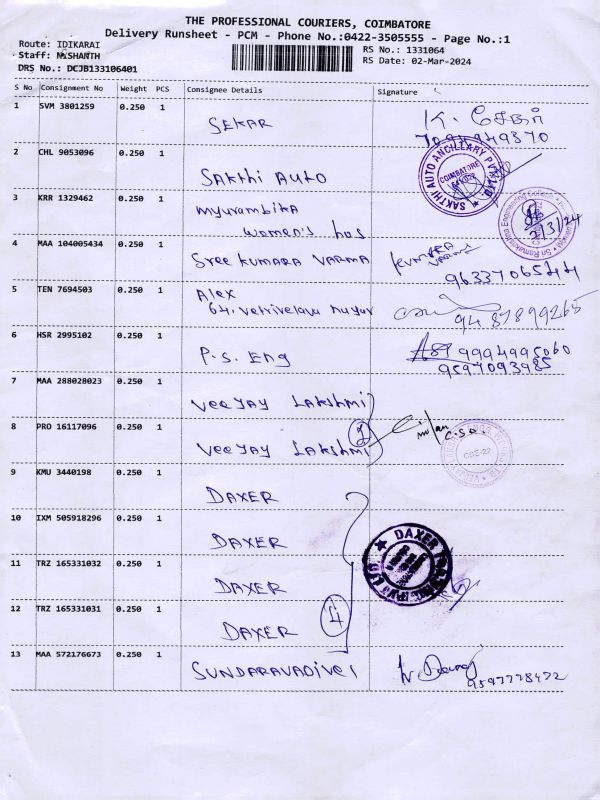 THE PROFESSIONAL COURIERS, COIMBATORE
Delivery Runsheet - PCM - Phone No.:0422-3505555 - Page No.:1
Route: IDIKARAI
Staff: NISHANTH
DRS No.: DCJB133106401
RS No.: 1331064
RS Date: 02-Mar-2024
S No Consignment No Weight PCS Consignee Details Signature
1 SVM 3801259 0.250 1 SEKAR K. சேகர்
7094949370
2 CHL 9053096 0.250 1 SAKthi AUTO
SAKTHI AUTO ANCILLARY PVT LTD
COIMBATORE
3 KRR 1329462 0.250 1 myurambika
women's hos
Sri Ramakrishna Engineering College
2/3/24
4 MAA 104005434 0.250 1 Sree KUMARA VARMA
9633706544
5 TEN 7694503 0.250 1 Alex
64, vetrivelavu nagar
9487899265
6 HSR 2995102 0.250 1 P.S. Eng 9994995060
9597093985
7 MAA 288028023 0.250 1 VeeJAY LAKshmi
8 PRO 16117096 0.250 1 VeeJAY LAKshmi 2
CDE-22
9 KMU 3440198 0.250 1 DAXER
10 IXM 505918296 0.250 1 DAXER
11 TRZ 165331032 0.250 1 DAXER
DAXER
12 TRZ 165331031 0.250 1 DAXER 4
13 MAA 572176673 0.250 1 SUNDARAVADIVEl
9597778472